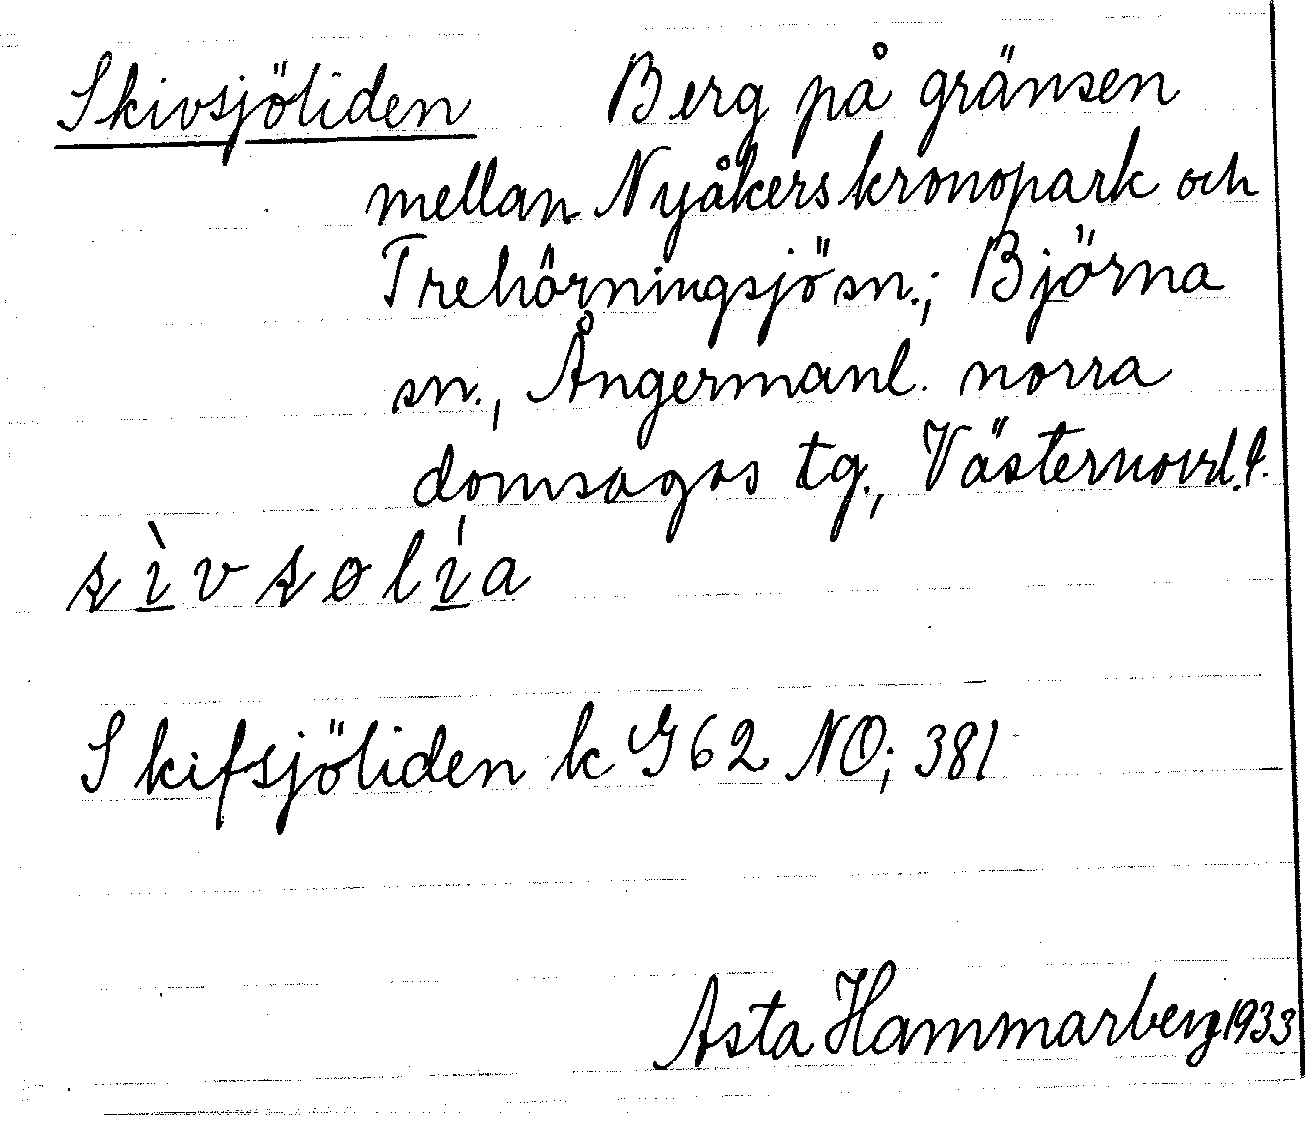 Skivsjöliden Berg på gränsen
mellan Nyåkers kronopark och
Trehörningsjö sn.; Björna
sn., Ångermanl. norra
domsagas tg., Västernorrl. l.
Skifsjöliden k G 62 NO; 381
Asta Hammarberg 1933